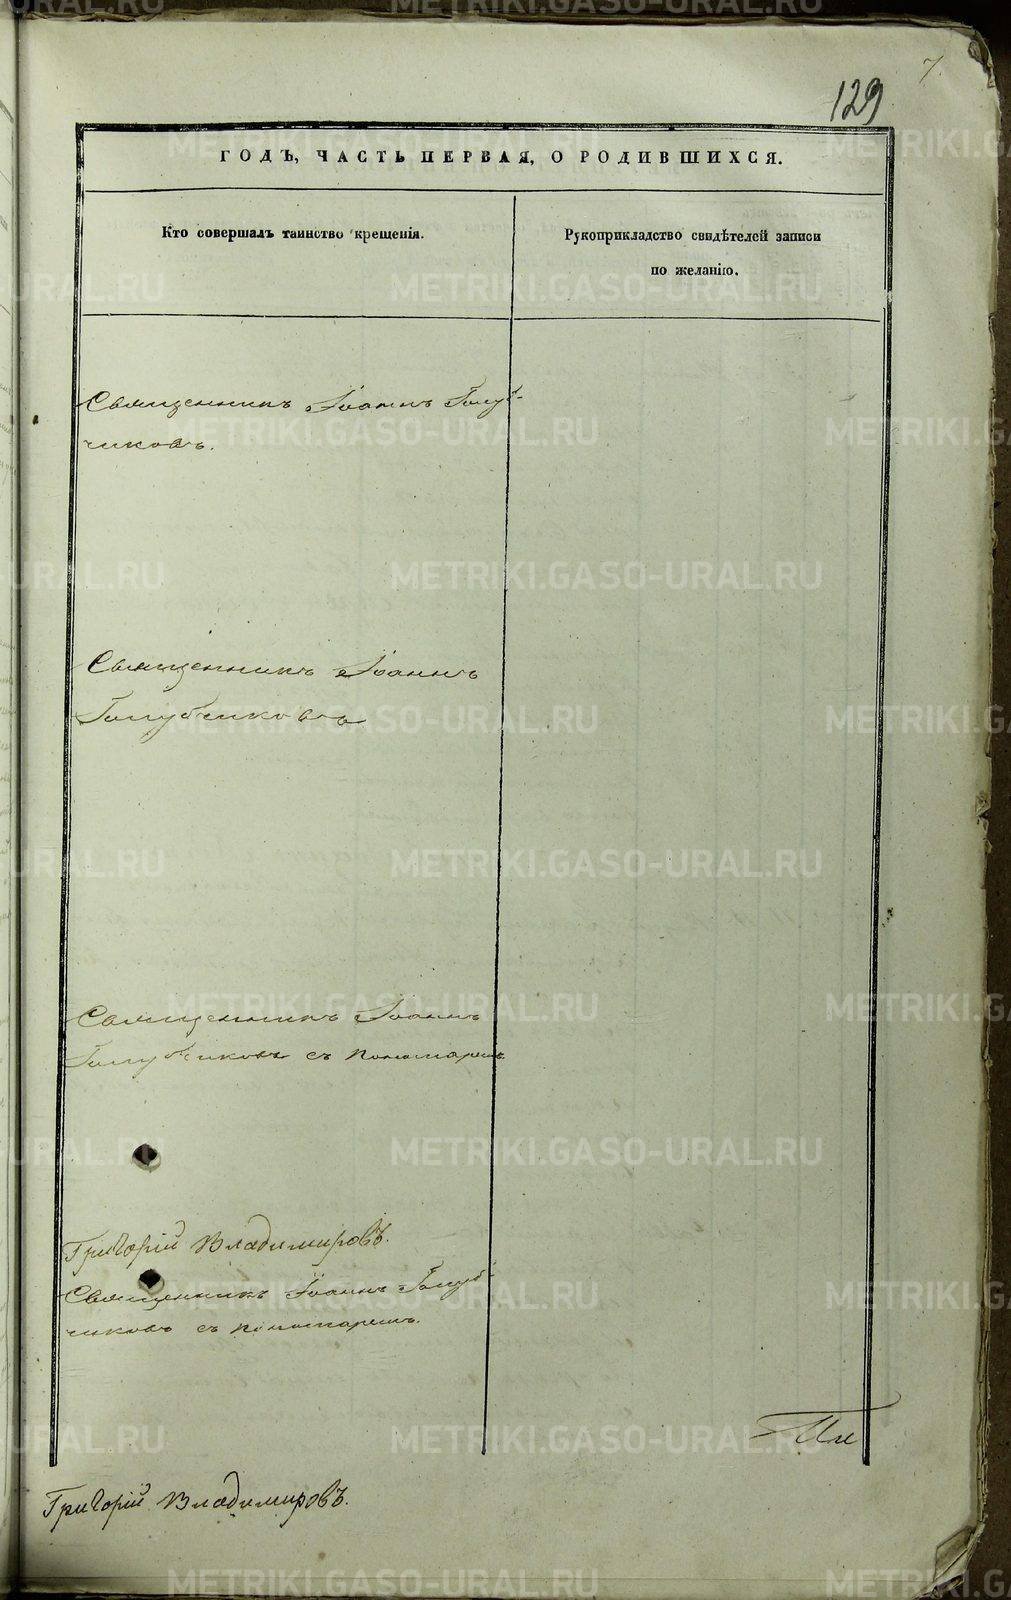 7.
129
ГОДЪ, ЧАСТЬ ПЕРВАЯ, О РОДИВШИХСЯ.
Кто совершалъ таинство крещенія.
Рукоприкладство свидѣтелей записи
по желанію.
Священникъ Іоаннъ Голуб-
чиковъ.
Священникъ Іоаннъ
Голубчиковъ
Священникъ Іоаннъ
Голубчиковъ съ пономаремъ
Григорій Владимировъ.
Священникъ Іоаннъ Голуб-
чиковъ съ пономаремъ.
Григорій Владимировъ.
METRIKI.GASO-URAL.RU